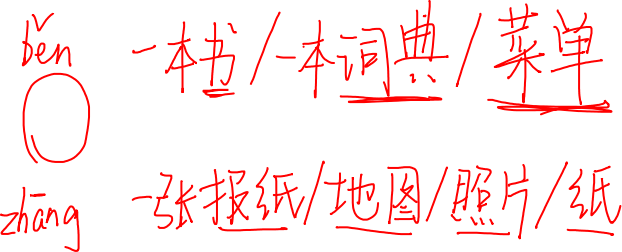 běn 一本书/一本词典/菜单
zhāng 一张报纸/地图/照片/纸